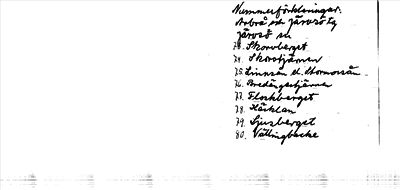 Nummerförklaringar.
Arbrå och Järvsö tg
Järvsö sn
73. Skornberget
74. Skorstjärnen
75. Linnsån el. Stormorsån
76. Bredängestjärnen
77. Flockberget
78. Häcklan
79. Ljusberget
80. Vällingbacke